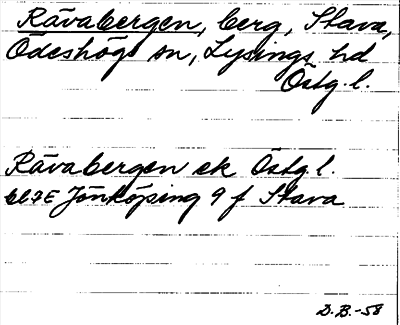 Rävabergen, berg, Stava,
Ödeshögs sn, Lysings hd
Östg.l.
Rävabergen ek Östg l.
bl 7E Jönköping 9 f Stava
D.B.-58